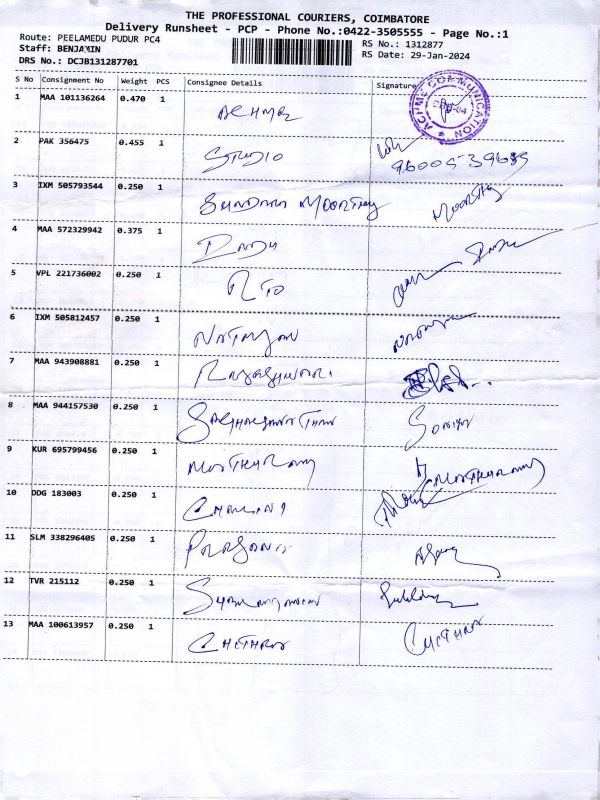 THE PROFESSIONAL COURIERS, COIMBATORE
Delivery Runsheet - PCP - Phone No.:0422-3505555 - Page No.:1
Route: PEELAMEDU PUDUR PC4
RS No.: 1312877
Staff: BENJAMIN
RS Date: 29-Jan-2024
DRS No.: DCJB131287701
S No Consignment No Weight PCS Consignee Details Signature
ACHME COMMUNICATION
1 MAA 101136264 0.470 1 ACHME
2 PAK 356475 0.455 1 STUDIO
3 IXM 505793544 0.250 1 SUNDARA MOORTHY MOORTHY
4 MAA 572329942 0.375 1 INDU
5 VPL 221736002 0.250 1 RTO
6 IXM 505812457 0.250 1 NATARAJAN
7 MAA 943908881 0.250 1 RAJESHWARI
8 MAA 944157530 0.250 1
9 KUR 695799456 0.250 1 MUTHURAMY MUTHURAMY
10 DDG 183003 0.250 1
11 SLM 338296405 0.250 1
12 TVR 215112 0.250 1
13 MAA 100613957 0.250 1 CHITHRA CHITHRA